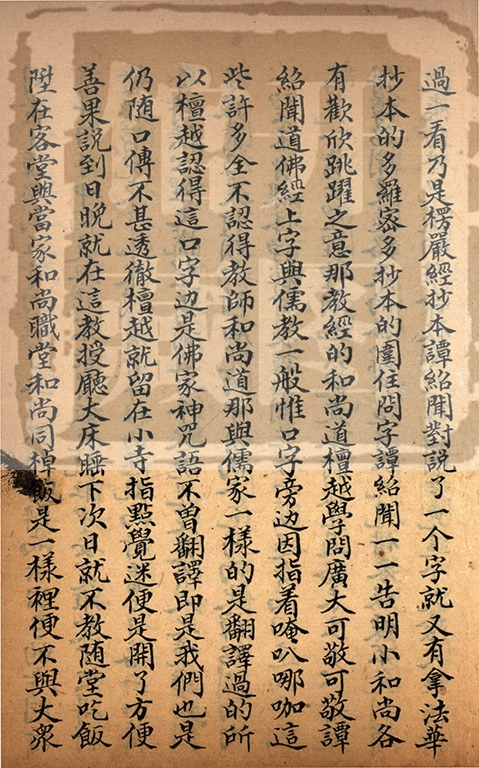 過一看乃是楞嚴經抄本譚紹聞對說了一个字就又有拿法華
抄本的多羅宻多抄本的圍住問字譚紹聞一一告明小和尚各
有歡欣跳躍之意那教經的和尚道檀越學問廣大可敬可敬譚
紹聞道佛經上字與儒教一般惟口字旁边因指着唵叭哪咖這
些許多全不認得教師和尚道那與儒家一樣的是翻譯過的所
以檀越認得這口字边是佛家神咒語不曾翻譯即是我們也是
仍随口傳不甚透徹檀越就留在小寺指點覺迷便是開了方便
善果說到日晚就在這教授廳大床睡下次日就不教随堂吃飯
陞在客堂與當家和尚職堂和尚同棹飯是一樣裡便不與大衆